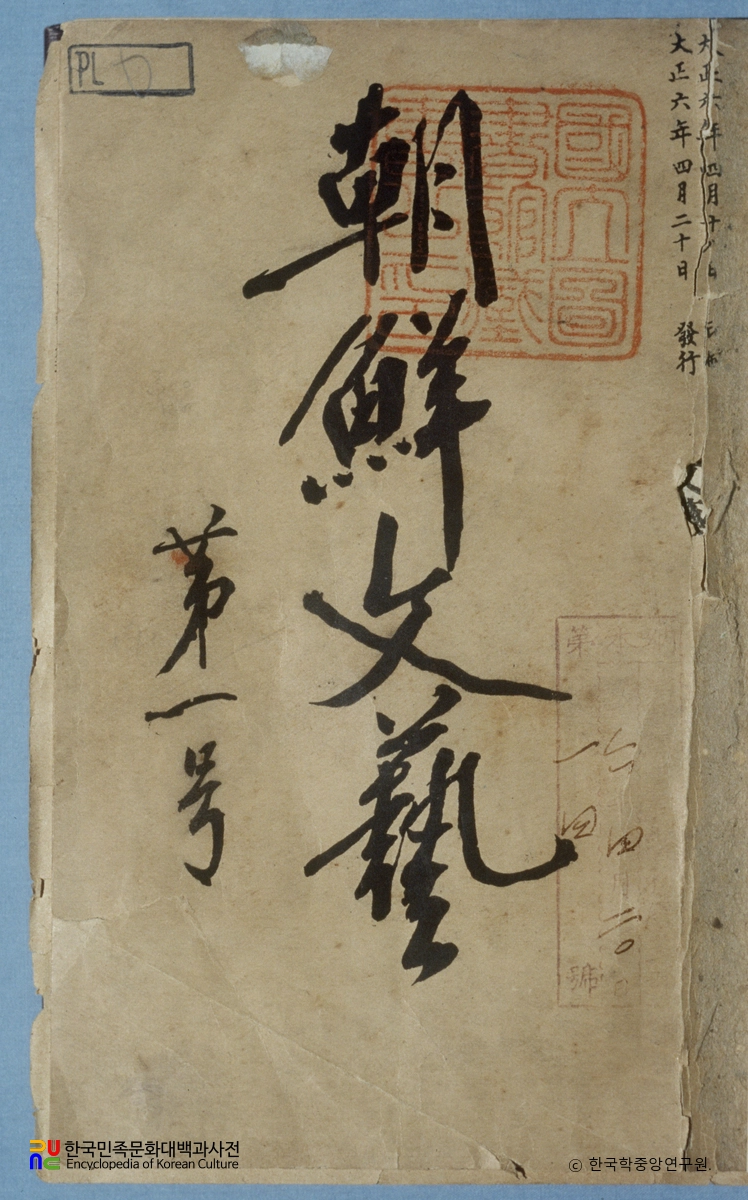 大正六年四月十八日 印刷
大正六年四月二十日 發行
朝鮮文藝
第一号
PL
한국민족문화대백과사전
Encyclopedia of Korean Culture
© 한국학중앙연구원.